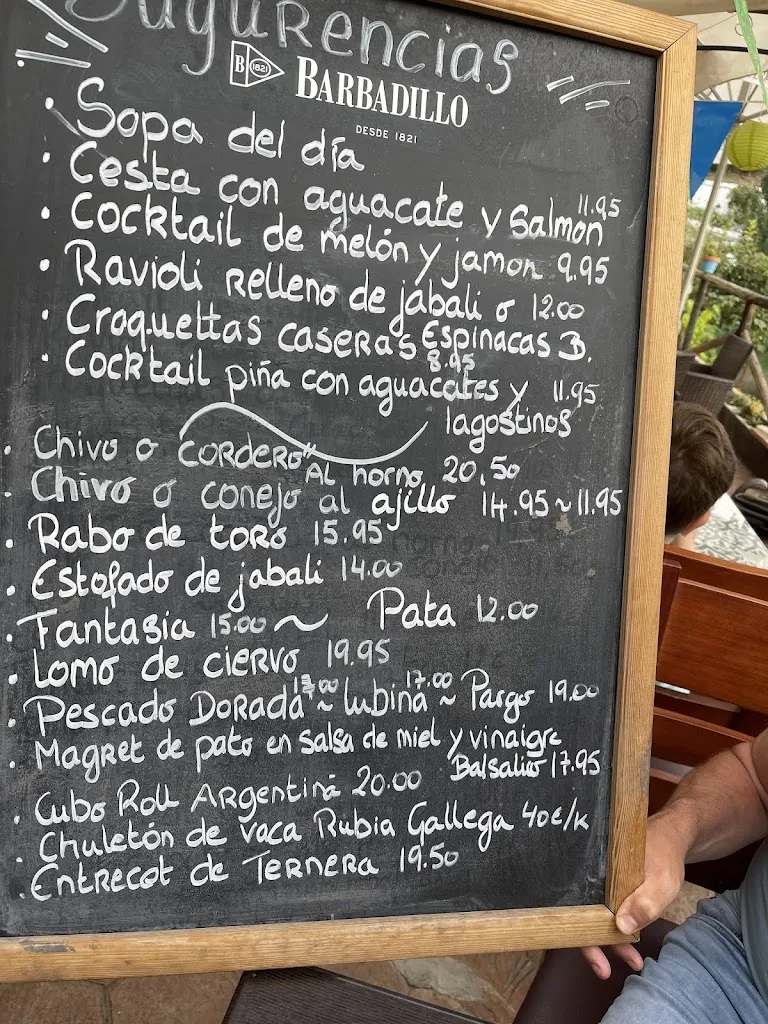 Sugurencias
B 1821 BARBADILLO
DESDE 1821
· Sopa del día
· Cesta con aguacate y salmon 11.95
· Cocktail de melón y jamon 9.95
· Ravioli relleno de jabali o 12.00
Espinacas B.
· Croquettas caseras 8.95
· Cocktail piña con aguacates y 11.95
lagostinos
· Chivo o cordero "Al horno 20,50
· Chivo o conejo al ajillo 14.95 ~ 11.95
· Rabo de toro 15.95
· Estofado de jabali 14.00
· Fantasia 15.00 ~ Pata 12.00
· Lomo de ciervo 19.95
· Pescado Dorada 17.00 ~ Lubina 17.00 ~ Pargo 19.00
· Magret de pato en salsa de miel y vinaigre
Balsalico 17.95
· Cubo Roll Argentina 20.00
· Chuletón de vaca Rubia Gallega 40€/K
· Entrecot de Ternera 19.50